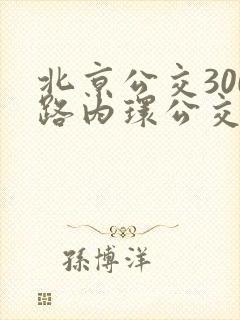 北京公交300
路内环公交
孫博洋